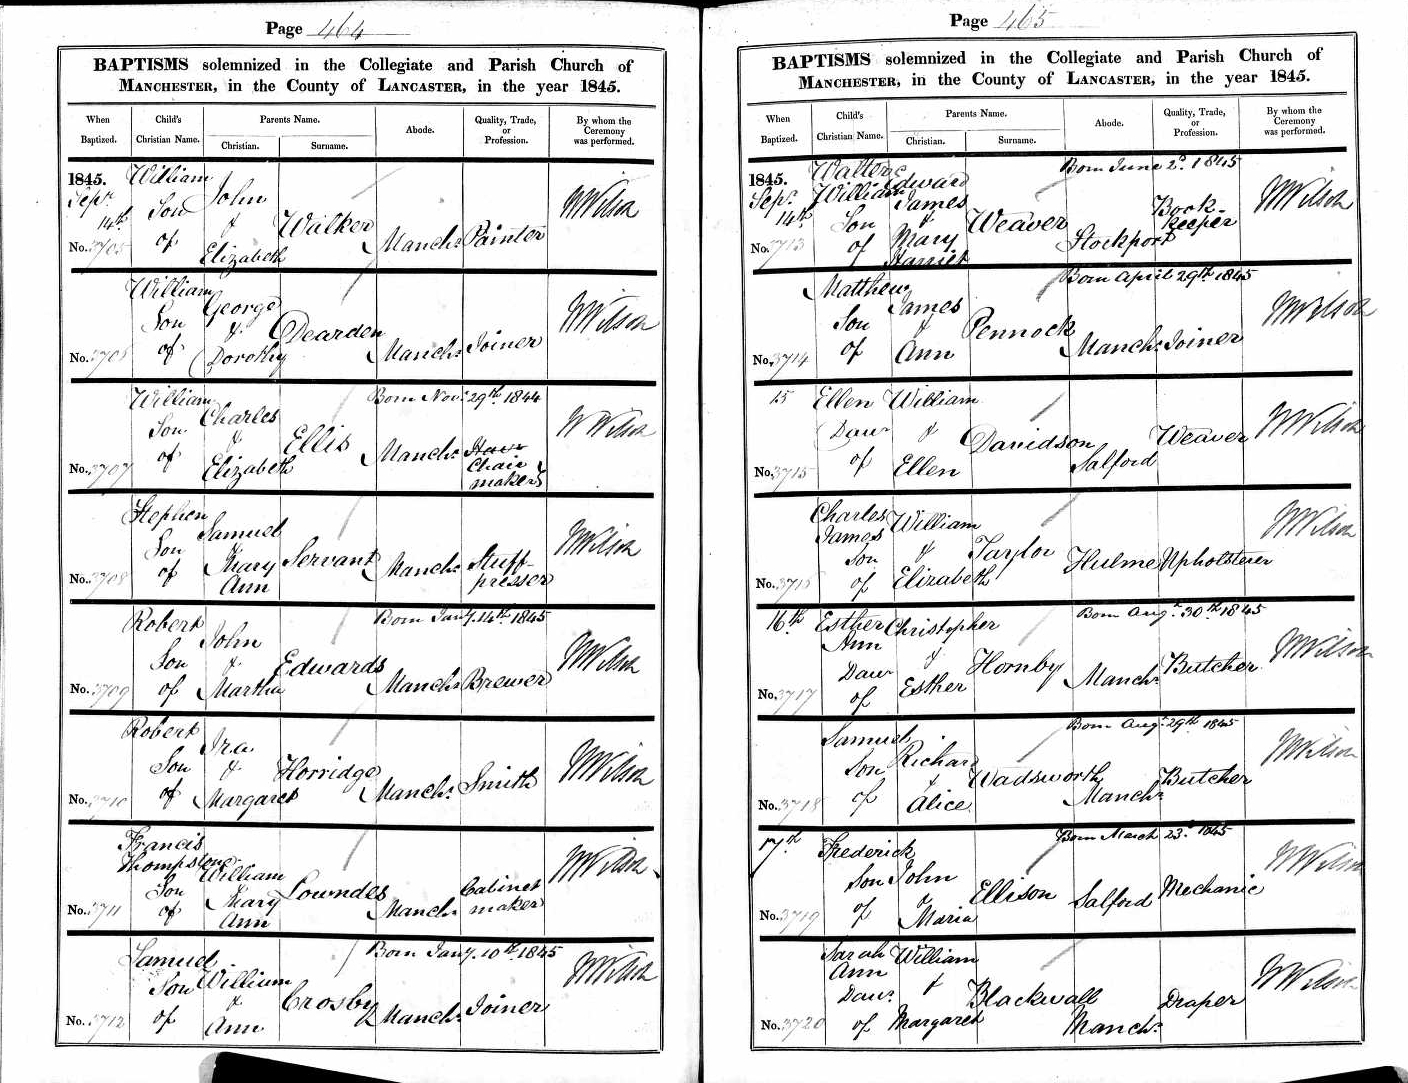 Page 464
BAPTISMS solemnized in the Collegiate and Parish Church of
MANCHESTER, in the County of LANCASTER, in the year 1845.
When Baptized.
Child's Christian Name.
Parents Name.
Christian.
Surname.
Abode.
Quality, Trade, or Profession.
By whom the Ceremony was performed.
1845.
Sepr
14th
No. 3705
William
Son
of
John
&
Elizabeth
Walker
Manchr
Painter
WWilson
No. 3706
William
Son
of
George
&
Dorothy
Dearden
Manchr
Joiner
WWilson
Born Novr 29th 1844
No. 3707
William
Son
of
Charles
&
Elizabeth
Ellis
Manchr
Chair
maker
WWilson
No. 3708
Stephen
Son
of
Samuel
& Mary
Ann
Servant
Manchr
Stuff-
presser
WWilson
Born Jany. 14th 1845
No. 3709
Robert
Son
of
John
&
Martha
Edwards
Manchr
Brewer
WWilson
No. 3710
Robert
Son
of
Ira
&
Margaret
Horridge
Manchr
Smith
WWilson
No. 3711
Francis
Thompstone
Son
of
William
& Mary
Ann
Lowndes
Manchr
Cabinet
maker
WWilson
Born Jany. 10th 1845
No. 3712
Samuel
Son
of
William
&
Ann
Crosby
Manchr
Joiner
WWilson
Page 465
BAPTISMS solemnized in the Collegiate and Parish Church of
MANCHESTER, in the County of LANCASTER, in the year 1845.
When Baptized.
Child's Christian Name.
Parents Name.
Christian.
Surname.
Abode.
Quality, Trade, or Profession.
By whom the Ceremony was performed.
Born June 2d. 1845
1845.
Sepr
14th
No. 3713
Walter
William
Son
of
Edward
James
&
Mary
Harriet
Weaver
Stockport
Book-
keeper
WWilson
Born April 29th 1845
No. 3714
Matthew
Son
of
James
&
Ann
Pennock
Manchr
Joiner
WWilson
15
No. 3715
Ellen
Daur
of
William
&
Ellen
Davidson
Salford
Weaver
WWilson
No. 3716
Charles
James
Son
of
William
&
Elizabeth
Taylor
Hulme
Upholsterer
WWilson
Born Augt. 30th 1845
16th
No. 3717
Esther
Ann
Daur
of
Christopher
&
Esther
Hornby
Manchr
Butcher
WWilson
Born Augt 29th 1845
No. 3718
Samuel
Son
of
Richard
&
Alice
Wadsworth
Manchr
Butcher
WWilson
Born March 23d 1845
17th
No. 3719
Frederick
Son
of
John
&
Maria
Ellison
Salford
Mechanic
WWilson
No. 3720
Sarah
Ann
Daur
of
William
&
Margaret
Blackwall
Manchr
Draper
WWilson